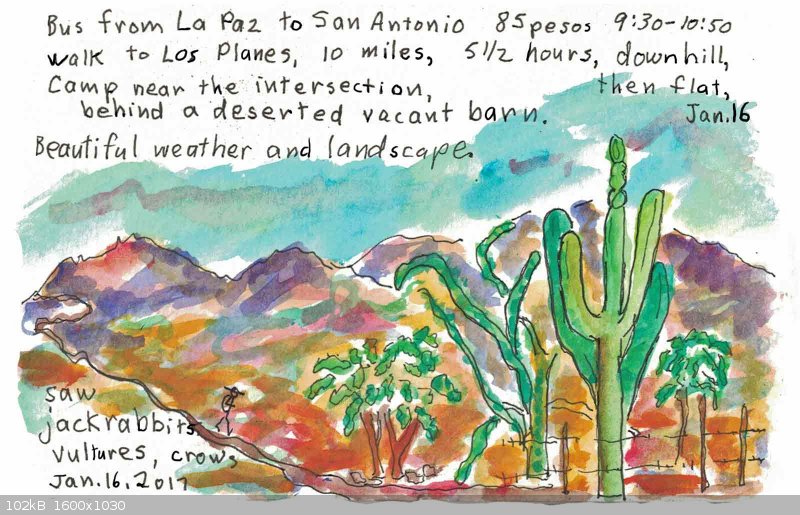 Bus from La Paz to San Antonio 85 pesos 9:30-10:50
walk to Los Planes, 10 miles, 5 1/2 hours, downhill,
Camp near the intersection, then flat,
behind a deserted vacant barn. Jan.16
Beautiful weather and landscape.
saw
jackrabbits,
vultures, crows
Jan.16, 2017
102kB 1600x1030